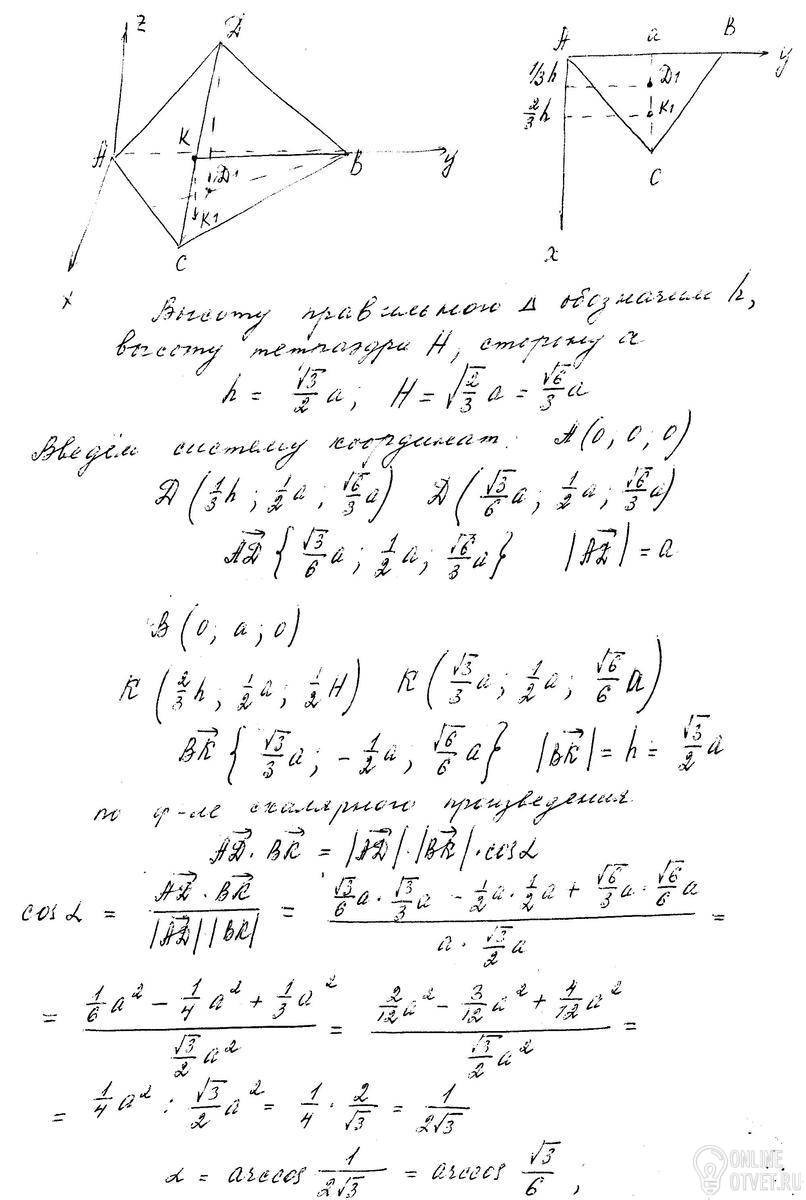 z
D
A
K
D1
B
y
K1
C
x
A
a
B
y
1/3h
D1
2/3 h
K1
C
x
Высоту правильного Δ обозначим h,
высоту тетраэдра H, сторону a
h = √3/2 a; H = √(2/3) a = √6/3 a
Введём систему координат: A(0; 0; 0)
D(1/3 h; 1/2 a; √6/3 a) D(√3/6 a; 1/2 a; √6/3 a)
AD→ {√3/6 a; 1/2 a; √6/3 a} |AD→| = a
B(0; a; 0)
K(2/3 h; 1/2 a; 1/2 H) K(√3/3 a; 1/2 a; √6/6 a)
BK→ {√3/3 a; -1/2 a; √6/6 a} |BK→| = h = √3/2 a
по ф-ле скалярного произведения
AD→ · BK→ = |AD→| · |BK→| · cosα
cosα = (AD→ · BK→)/(|AD→| |BK→|) = (√3/6 a · √3/3 a - 1/2 a · 1/2 a + √6/3 a · √6/6 a)/(a · √3/2 a) =
= (1/6 a² - 1/4 a² + 1/3 a²)/(√3/2 a²) = (2/12 a² - 3/12 a² + 4/12 a²)/(√3/2 a²) =
= 1/4 a² : √3/2 a² = 1/4 · 2/√3 = 1/(2√3)
α = arccos 1/(2√3) = arccos √3/6;
ONLINE
OTVET.RU